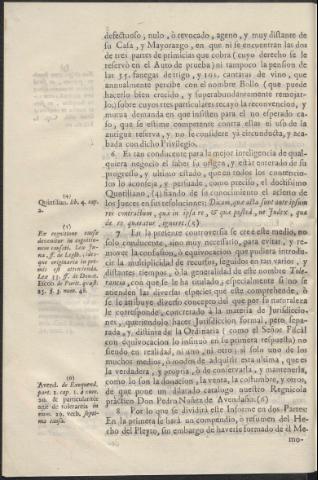 defectuoso, nulo, ò revocado, ageno, y muy distante de
su Casa, y Mayorazgo, en que ni se encuentran las dos
de tres partes de primicias que cobra (cuyo derecho se le
reservò en el Auto de prueba) ni tampoco la pension de
las 35. fanegas de trigo, y 105. cantaras de vino, que
annualmente percibe con el nombre Bollo (que puede
haverlo bien crecido, y superabundantemente remojar-
lo) sobre cuyos tres particulares recayò la reconvencion, y
mutua demanda en que insisten para el no esperado ca-
so, que se estime competente contra ellas el uso de la
antigua reserva, y no se considere yà circunducta, y aca-
bada con dicho Privilegio.
6. Es tan conducente para la mejor inteligencia de qual-
quiera negocio el saber su origen, y estàr enterado de su
progresso, y ultimo estado, que en todos los conten-
ciosos lo aconseja, y persuade, como preciso, el doctissimo
Quintiliano, (4) fiando de su conocimiento el acierto de
los Jueces en sus resoluciones: Dicam, quae acta sunt ante ipsum
rei contractum, quae in ipsa re, & quae postea, ne Judex, qua
de re quaeratur, ignoret. (5)
(4)
Quintilian. lib. 4. cap.
2.
(5)
Ex cognitione causae
devenitur in cognitio-
nem causati. Leu
ff. de Legib. ideo-
que originaria in pri-
mis est attendenda.
Leg. 13. ff. de Donat.
7. En la presente controversia se cree este medio, no
solo conducente, sino muy necessario, para evitar, y re-
mover la confusion, y equivocaciones, que puede intro-
ducir la multiplicidad de recursos, seguidos en tan varios, y
distantes tiempos, ò la generalidad de este nombre Tole-
rancia, con que se le ha citulado, especialmente si no se
atienden las diversas especies que este comprehende, ò
se le atribuye diverso concepto del que por la naturaleza
le corresponde, concretado à la materia de Jurisdiccio-
nes, queriendolo hacer Jurisdiccion formal, pero sepa-
rada, y distinta de la Ordinaria (como el Señor Fiscal
con equivocacion lo insinuò en la primera respuesta) no
siendo en realidad, ni uno, ni otro; al solo uno de los
muchos medios, ò modos de adquirir esta ultima, que es
la verdadera, y propria, ò de conservarla, y mantenerla,
como lo son la donacion, la venta, la costumbre, y otros,
de que pone un dilatado catalogo nuestro Regnicola
pràctico Don Pedro Nuñez de Avendaño. (6)
(6)
Avend. de Exequend.
part. 1. cap. 1. à num.
20. & particularitèr
agit de tolerantia in
num. 20. verb. septi-
ma causa.
8. Por lo que se dividirà este Informe en dos Partes:
En la primera se harà un compendio, ò resumen del He-
cho del Pleyto, sin embargo de haverse formado el Me-
mo-